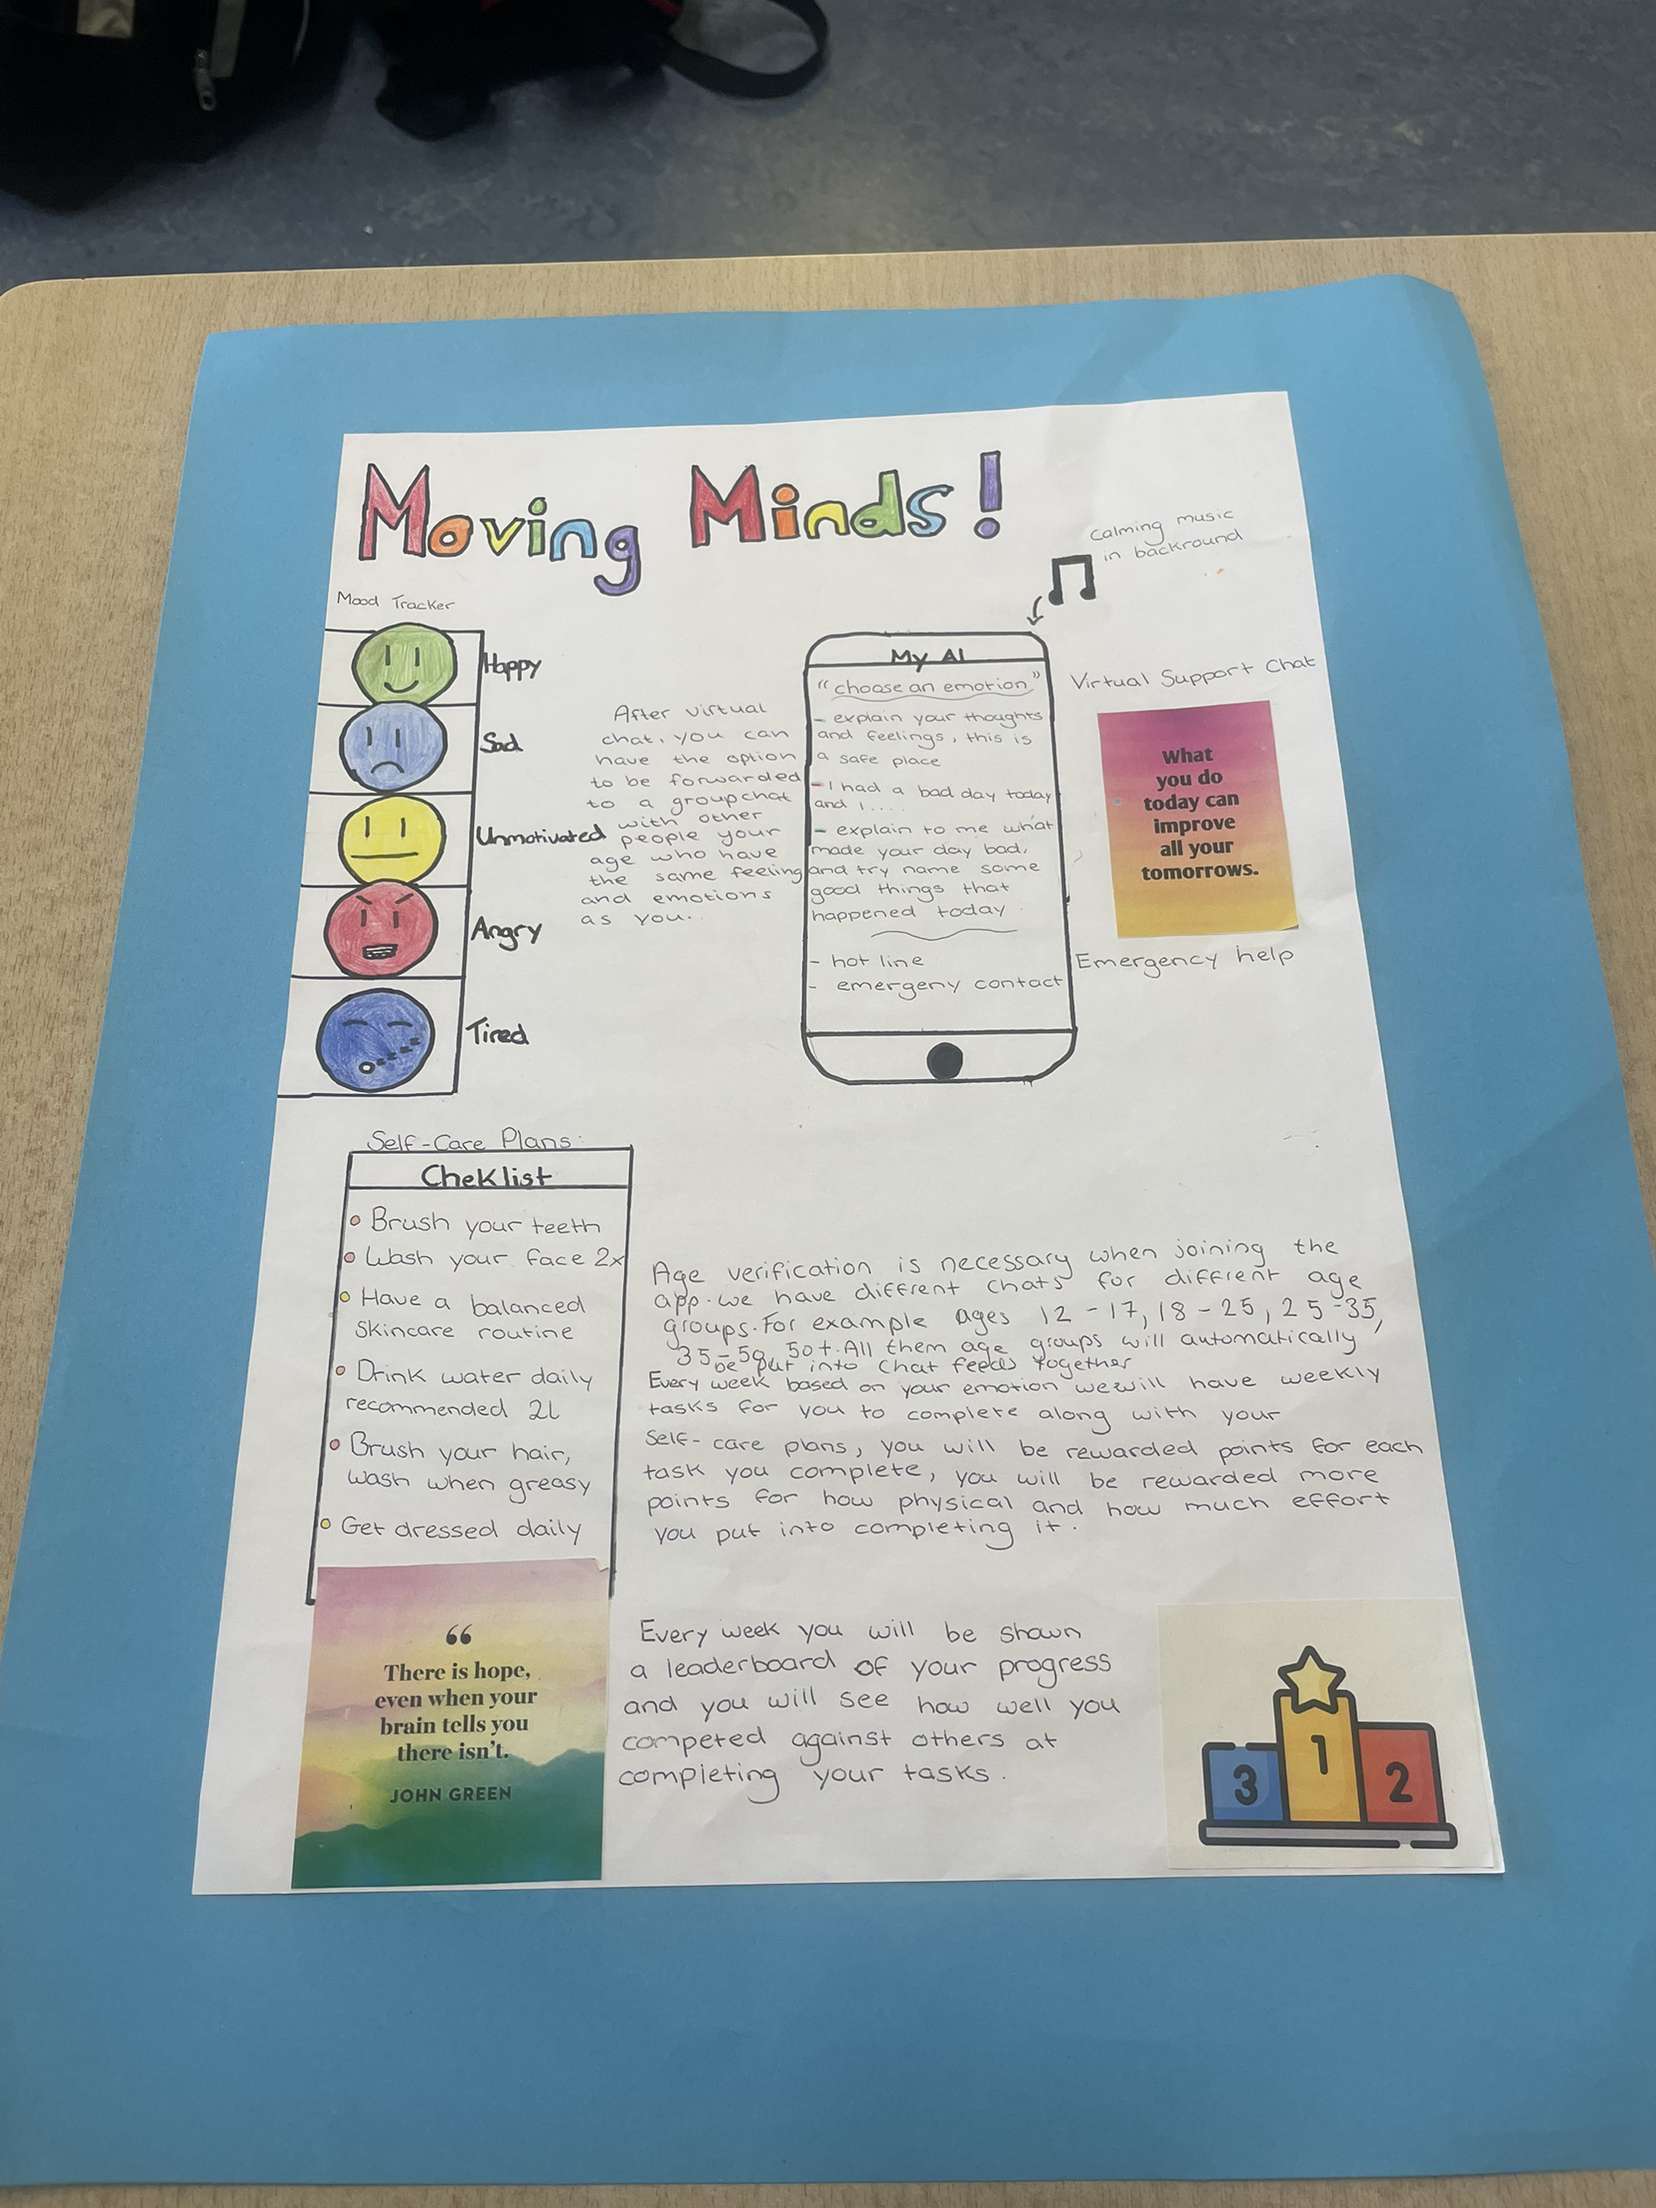 Moving Minds!
calming music
in backround
Mood Tracker
Happy
Sad
Unmotivated
Angry
Tired
After virtual
chat, you can
have the option
to be forwarded
to a groupchat
with other
people your
age who have
the same feeling
and emotions
as you..
My AI
"choose an emotion"
- explain your thoughts
and feelings, this is
a safe place
- I had a bad day today
and I....
- explain to me what
made your day bad,
and try name some
good things that
happened today
- hot line
- emergeny contact
Virtual Support Chat
What
you do
today can
improve
all your
tomorrows.
Emergency help
Self-Care Plans:
Cheklist
• Brush your teeth
• Wash your face 2x
• Have a balanced
skincare routine
• Drink water daily
recommended 2L
• Brush your hair,
wash when greasy
• Get dressed daily
Age verification is necessary when joining the
app. we have diffrent chats for diffrent age
groups. For example ages 12-17, 18-25, 25-35,
35-50, 50+. All them age groups will automatically
be put into chat feeds together
Every week based on your emotion we will have weekly
tasks for you to complete along with your
self-care plans, you will be rewarded points for each
task you complete, you will be rewarded more
points for how physical and how much effort
you put into completing it.
“
There is hope,
even when your
brain tells you
there isn't.
JOHN GREEN
Every week you will be shown
a leaderboard of your progress
and you will see how well you
competed against others at
completing your tasks.
3 1 2